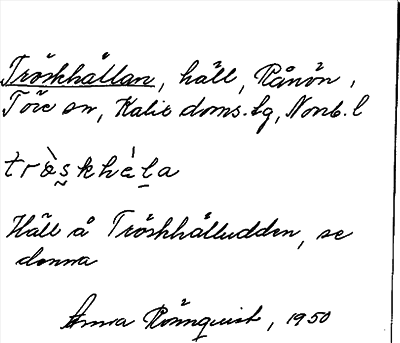 Tröskhällan, häll, Rånön,
Töre sn, Kalix doms.lg, Nonb.l
trö̀s̱khàḻa
Häll å Tröskhälludden, se
denna
Anna Rönnquist, 1950